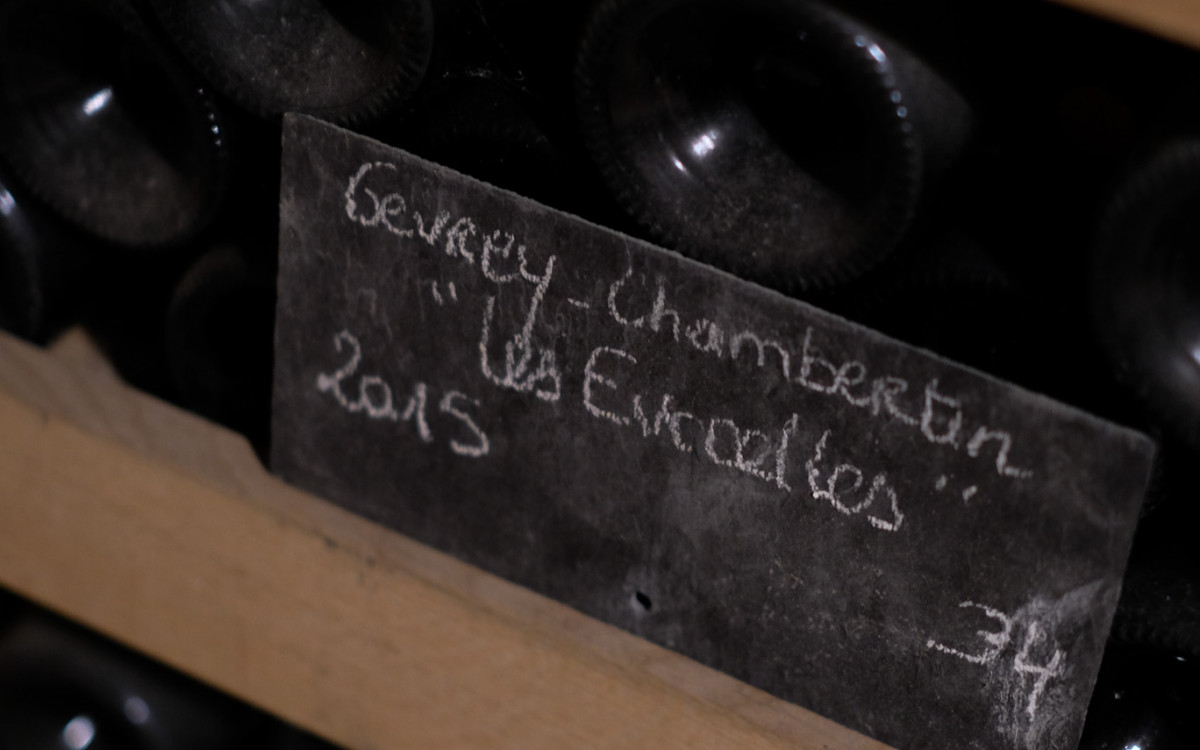 Gevrey-Chambertin
"Les Evocelles"
2015
34